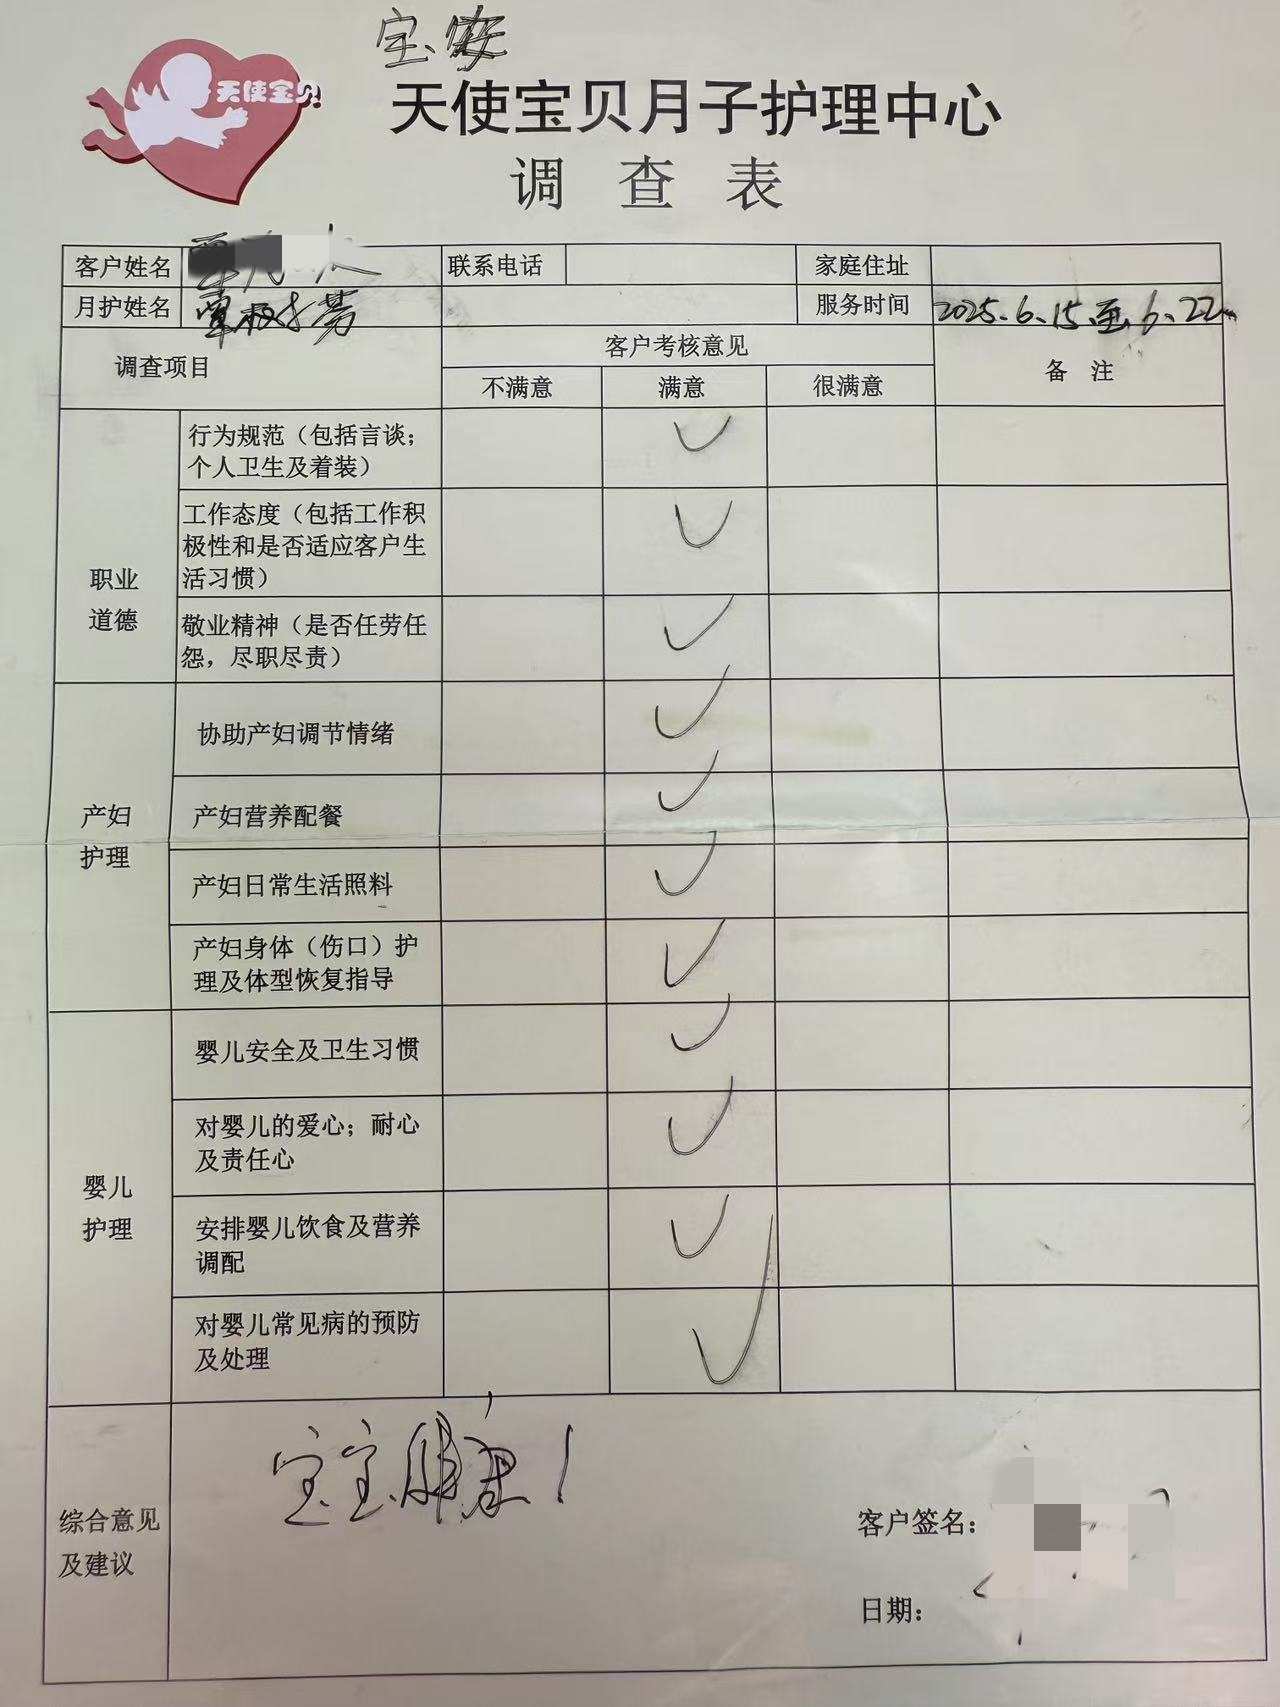 宝安
天使宝贝
天使宝贝月子护理中心
调 查 表
客户姓名 联系电话 家庭住址
月护姓名 覃极芬 服务时间 2025.6.15至6.22
调查项目 客户考核意见 备 注
不满意 满意 很满意
职业
道德
行为规范（包括言谈；
个人卫生及着装） ✓
工作态度（包括工作积
极性和是否适应客户生
活习惯） ✓
敬业精神（是否任劳任
怨，尽职尽责） ✓
产妇
护理
协助产妇调节情绪 ✓
产妇营养配餐 ✓
产妇日常生活照料 ✓
产妇身体（伤口）护
理及体型恢复指导 ✓
婴儿
护理
婴儿安全及卫生习惯 ✓
对婴儿的爱心；耐心
及责任心 ✓
安排婴儿饮食及营养
调配 ✓
对婴儿常见病的预防
及处理 ✓
综合意见
及建议
宝宝健康！
客户签名：
日期：